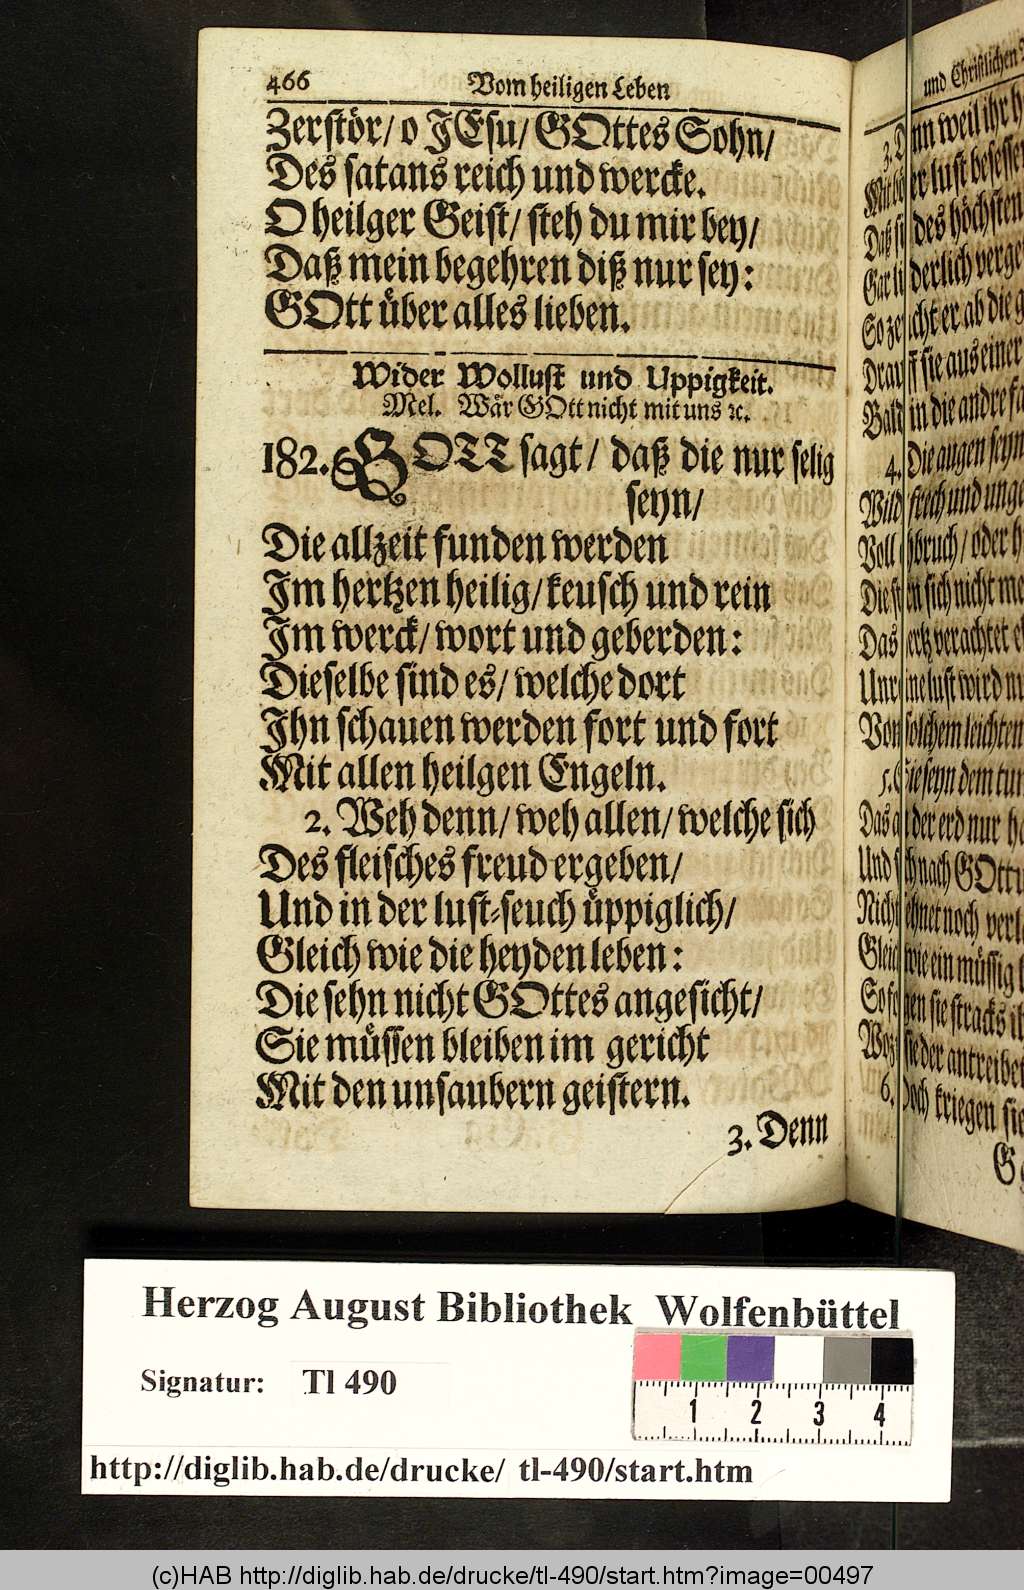 466 Vom heiligen Leben
Zerstör/ o JEsu/ GOttes Sohn/
Des satans reich und wercke.
O heilger Geist/ steh du mir bey/
Daß mein begehren diß nur sey:
GOtt über alles lieben.
Wider Wollust und Uppigkeit.
Mel. Wär GOtt nicht mit uns ꝛc.
182. GOTT sagt/ daß die nur selig
seyn/
Die allzeit funden werden
Jm hertzen heilig/ keusch und rein
Jm werck/ wort und geberden:
Dieselbe sind es/ welche dort
Jhn schauen werden fort und fort
Mit allen heilgen Engeln.
2. Weh denn/ weh allen/ welche sich
Des fleisches freud ergeben/
Und in der lust-seuch üppiglich/
Gleich wie die heyden leben:
Die sehn nicht GOttes angesicht/
Sie müssen bleiben im gericht
Mit den unsaubern geistern.
3. Denn
und Christlichen
3. Denn weil ihr
er lust besessen
des höchsten
derlich
er ab die
sie aus einer
Bald in die andre
4. Die augen seyn
und
/ oder
sich nicht
Das verachtet
lust wird
Von solchem leichten
5. Sie seyn dem
der erd nur
Und nach GOtt
noch
Gleich wie ein müssig
sie stracks
sie der antreibet
6. Doch kriegen sie
Herzog August Bibliothek Wolfenbüttel
Signatur: Tl 490
1 2 3 4
http://diglib.hab.de/drucke/ tl-490/start.htm
(c)HAB http://diglib.hab.de/drucke/tl-490/start.htm?image=00497